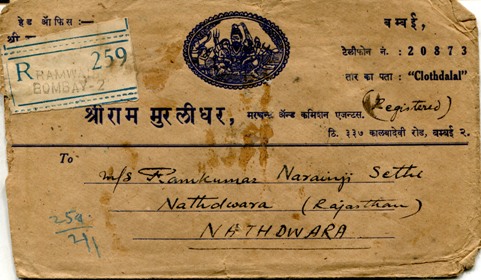 हेड ऑफिस :—
बम्बई,
टेलीफोन नं. : 20873
तार का पता : "Clothdalal"
R 259
BOMBAY-2
(Registered)
श्रीराम मुरलीधर, मरचन्ट ॲन्ड कमिशन एजन्टस.
टि. ३३७ कालबादेवी रोड, बम्बई २.
To
M/s Ramkumar Narainji Sethi
Nathdwara (Rajasthan)
NATHDWARA
258
2/1